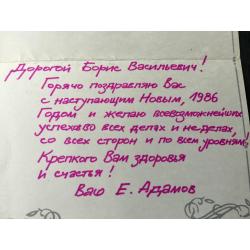 Дорогой Борис Васильевич!
Горячо поздравляю Вас
с наступающим Новым, 1986
Годом и желаю всевозможнейших
успехов во всех делах и неделах,
со всех сторон и по всем уровням!
Крепкого Вам здоровья
и счастья!
Ваш Е. Адамов